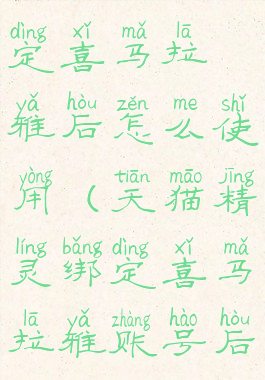 dìng xǐ mǎ lā
定喜马拉
yǎ hòu zěn me shǐ
雅后怎么使
yòng tiān māo jīng
用（天猫精
líng bǎng dìng xǐ mǎ
灵绑定喜马
lā yǎ zhàng hào hòu
拉雅账号后